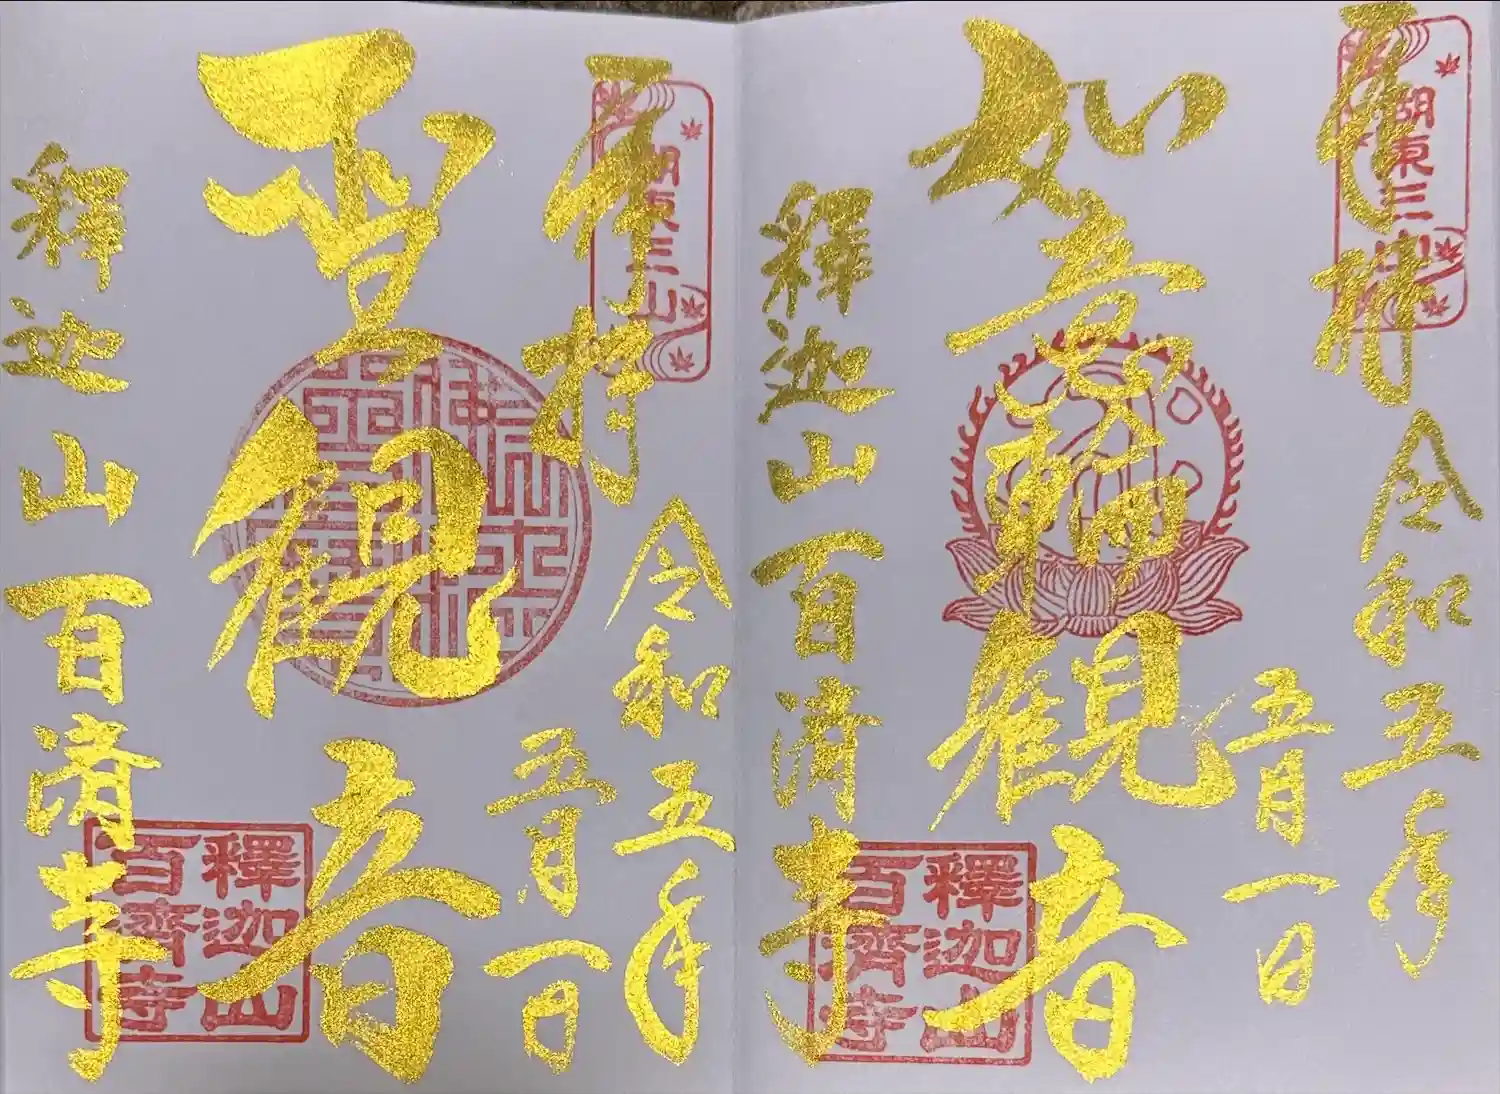 奉拝
湖東三山
令和五年
五月一日
如意輪観音
釋迦山百済寺
釋迦山
百濟寺
奉拝
湖東三山
令和五年
五月一日
聖観音
釋迦山百済寺
釋迦山
百濟寺